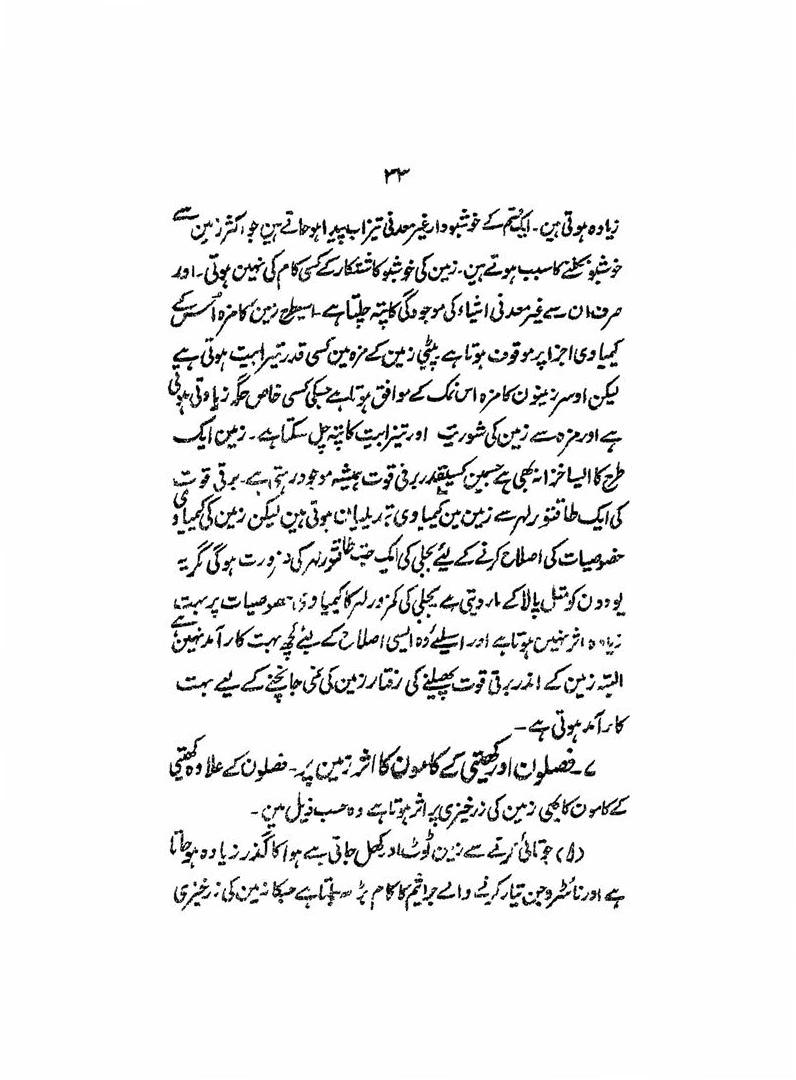 ۳۳
زیادہ ہوتی ہین۔ ایک قسم کے خوشبودار غیر معدنی تیزاب پیدا ہوجاتے ہین جو اکثر زمین سے
خوشبو نکلنے کا سبب ہوتے ہین۔ زمین کی خوشبو کاشتکار کے کسی کام کی نہین ہوتی۔ اور
صرف ان سے غیر معدنی اشیاء کی موجودگی کا پتہ چلتا ہے۔ اسیطرح زمین کا مزہ اُس کے
کیمیاوی اجزا پر موقوف ہوتا ہے پٹپٹی زمین کے مزہ مین کسی قدر تیزابیت ہوتی ہے
لیکن اوسر زمینون کا مزہ اس نمک کے موافق ہوتا ہے جسکی کسی خاص جگہ زیادتی ہوتی
ہے اور مزہ سے زمین کی شوریت اور تیزابیت کا پتہ چل سکتا ہے۔ زمین ایک
طرح کا ایسا خزانہ بھی ہے جسمین کسیقدر برقی قوت ہمیشہ موجود رہتی ہے۔ برقی قوت
کی ایک طاقتور لہر سے زمین مین کیمیاوی تبدیلیان ہوتی ہین لیکن زمین کی کیمیاوی
خصوصیات کی اصلاح کرنے کے لیئے بجلی کی ایک طاقتور لہر کی ضرورت ہوگی مگر یہ
پودون کو مثل پالا کے مار دیتی ہے بجلی کی کمزور لہر کا کیمیاوی خصوصیات پر بہت
زیادہ اثر نہین ہوتا ہے اور اسلیے وہ ایسی اصلاح کے لیئے کچھ بہت کارآمد نہین ہے
البتہ زمین کے اندر برقی قوت پھیلنے کی رفتار زمین کی نمی جانچنے کے لیے بہت
کارآمد ہوتی ہے۔
۷۔ فصلون اور کھیتی کے کامون کا اثر زمین پر۔ فصلون کے علاوہ کھیتی
کے کامون کا بھی زمین کی زرخیزی پر اثر ہوتا ہے وہ حسب ذیل ہین۔
(۱) جوتائی کرنے سے زمین ٹوٹ اور کھل جاتی ہے ہوا کا گذر زیادہ ہوجاتا
ہے اور نائٹروجن تیار کرنے والے جراثیم کا کام بڑھ جاتا ہے جسکا زمین کی زرخیزی